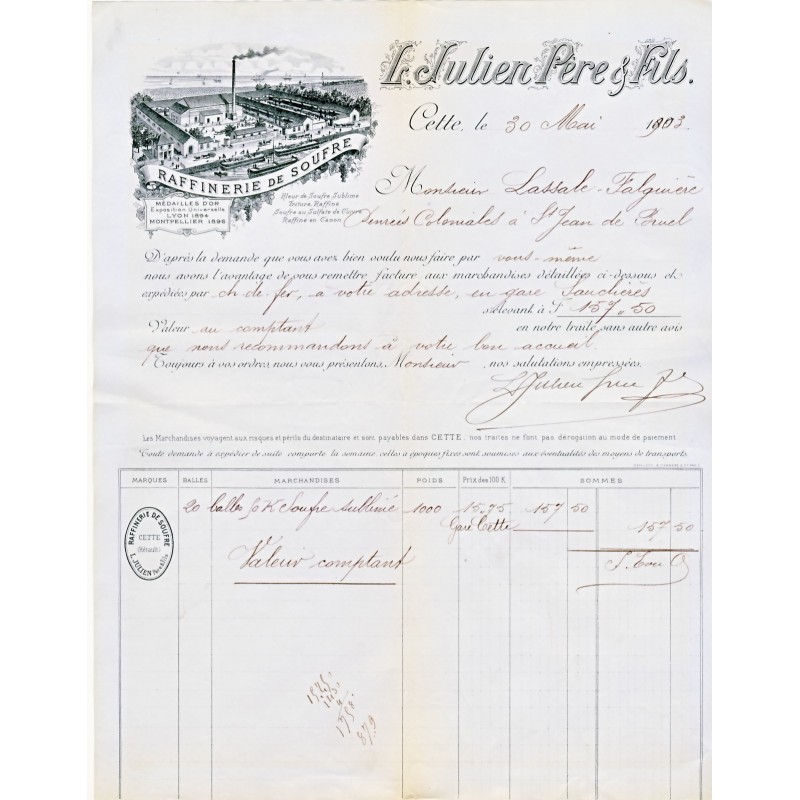 L. Julien Père & Fils.
Cette, le 30 Mai 1903.
RAFFINERIE DE SOUFRE
MÉDAILLES D'OR
Exposition Universelle
LYON 1894
MONTPELLIER 1896
Fleur de Soufre Sublimé
Trituré, Raffiné
Soufre au Sulfate de Cuivre
Raffiné en Canon
Monsieur Lassale-Falguière
Denrées Coloniales à St Jean de Bruel
D'après la demande que vous avez bien voulu nous faire par vous-même
nous avons l'avantage de vous remettre facture aux marchandises détaillées ci-dessous et
expédiées par ch. de fer, à votre adresse, en gare Sauclières
s'élevant à F 157,,50
Valeur au comptant en notre traite sans autre avis
que nous recommandons à votre bon accueil.
Toujours à vos ordres, nous vous présentons, Monsieur nos salutations empressées.
L. Julien
Les Marchandises voyagent aux risques et périls du destinataire et sont payables dans CETTE, nos traites ne font pas dérogation au mode de paiement
Toute demande à expédier de suite comporte la semaine, celles à époques fixes sont soumises aux éventualités des moyens de transports.
MARQUES BALLES MARCHANDISES POIDS Prix des 100 K. SOMMES
20 balles 50 K Soufre sublimé 1000 15.75 157 50
Gare Cette 157 50
RAFFINERIE DE SOUFRE
CETTE
(Hérault)
L. JULIEN Père & Fils
Valeur comptant